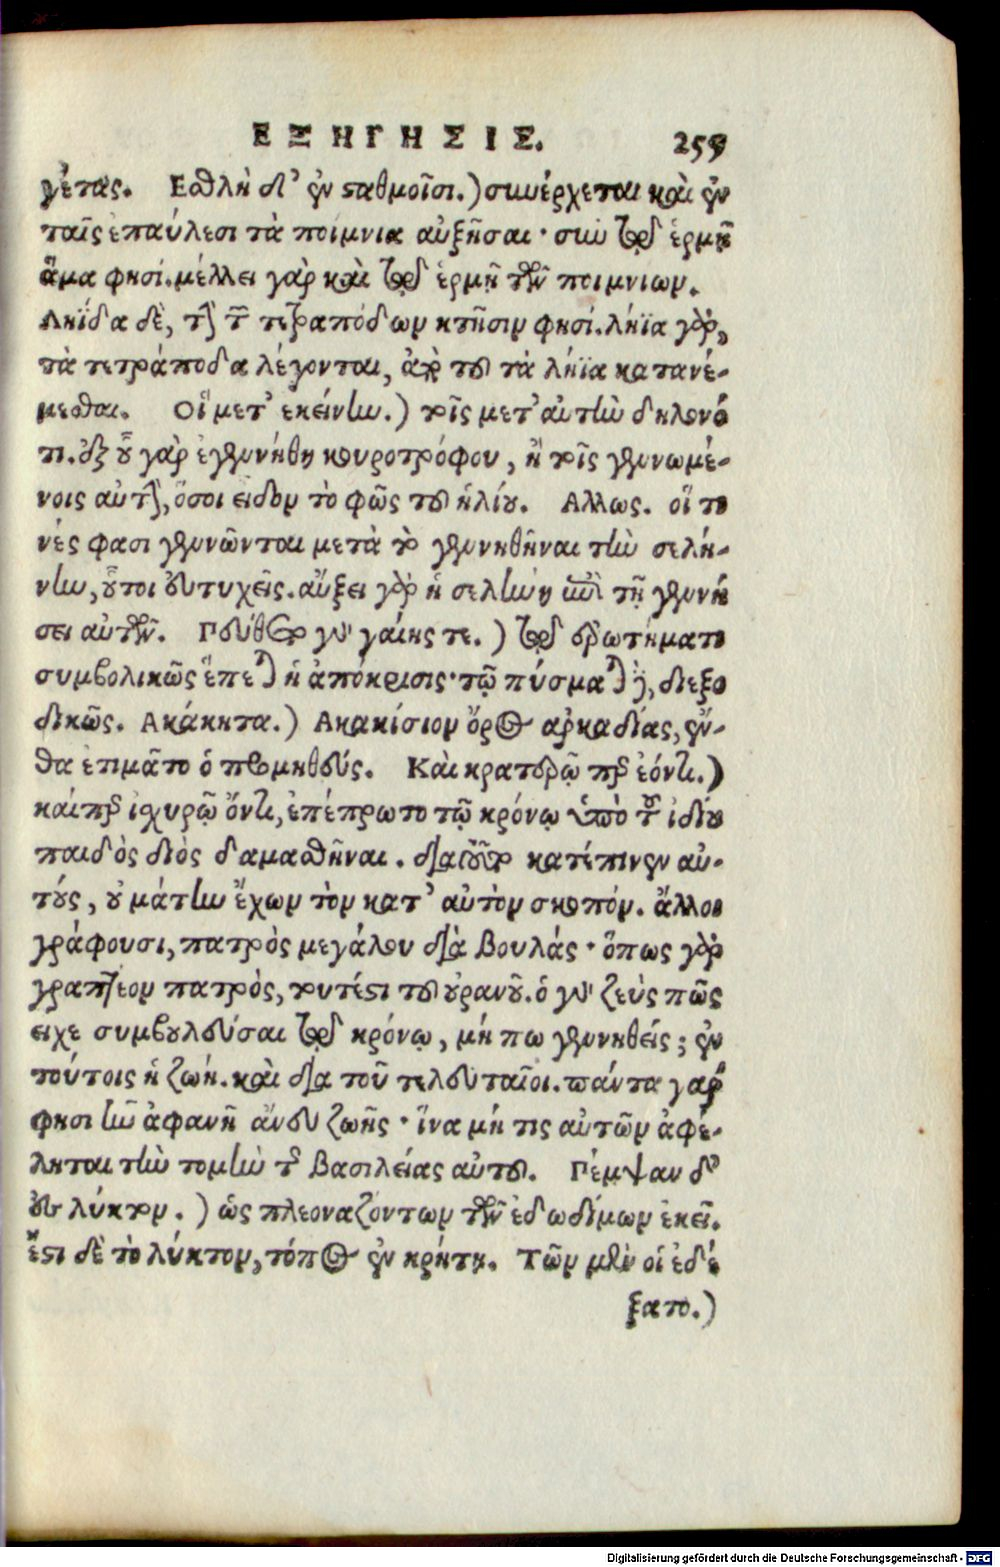 ΕΞΗΓΗΣΙΣ. 259
γέτας. Εσθλὴ δ' ἐν σταθμοῖσι.) συνέρχεται καὶ ἐν
ταῖς ἐπαύλεσι τὰ ποίμνια αὐξῆσαι· σὺν τῷ ἑρμῇ
ἅμα φησί. μέλλει γὰρ καὶ τῷ ἑρμῇ τῶν ποιμνίων.
Ληΐδα δὲ, τὴν τῶν τετραπόδων κτῆσιν φησί. λήϊα γὰρ,
τὰ τετράποδα λέγονται, ἀπὸ τοῦ τὰ λήϊα κατανέ-
μεσθαι. Οἳ μετ' ἐκείνην.) τοῖς μετ' αυτὴν δηλονό
τι. ἐξ οὗ γὰρ ἐγεννήθη κουροτρόφου, ἢ τοῖς γεννωμέ-
νοις αὐτὴν, ὅσοι ειδον τὸ φῶς τοῦ ἡλίου. Αλλως. οἵ τι
νές φασι γεννῶνται μετὰ τὸ γεννηθῆναι τὴν σελή-
νην, οὗτοι εὐτυχεῖς. αὔξει γὰρ ἡ σελήνη ἐπὶ τῇ γεννή
σει αὐτῶν. Πεύθεο γῦ γαίης τε.) τῷ ἐρωτήματι
συμβολικῶς ἕπεται ἡ ἀπόκρισις· τῷ πύσματι δὲ, διεξο
δικῶς. Ακάκητα.) Ακακίσιον ὄρος αρκαδίας, ἔν-
θα ετιμᾶτο ὁ προμηθεύς. Καὶ κρατερῷ περ ἐόντι.)
καί περ ἰσχυρῷ ὄντι, ἐπέπρωτο τῷ κρόνῳ ὑπὸ τοῦ ἰδίου
παιδὸς διὸς δαμασθῆναι. διὰ τοῦτο κατέπινεν αὐ-
τούς, οὐ μάτην ἔχων τὸν κατ' αὐτὸν σκοπόν. ἄλλοι
γράφουσι, πατρὸς μεγάλου διὰ βουλάς· ὅπως γὰρ
γραπτέον πατρὸς, τουτέστι τοῦ οὐρανοῦ. ὁ γῦ ζεὺς πῶς
ειχε συμβουλεῦσαι τῷ κρόνῳ, μή πω γεννηθείς; ἐν
τούτοις ἡ ζωή. καὶ διὰ τοῦ τελευταῖοι. πάντα γάρ
φησι ἦν ἀφανῆ ἄνευ ζωῆς· ἵνα μή τις αὐτῶν ἀφέ-
ληται τὴν τομὴν τῆς βασιλείας αὐτοῦ. Πέμψαν δ'
ἐς λύκτον.) ὡς πλεοναζόντων τῶν ἐδωδίμων ἐκεῖ.
ἔστι δὲ τὸ λύκτον, τόπος ἐν κρήτῃ. Τῶν μὲν οἱ ἐδέ
ξατο.)
Digitalisierung gefördert durch die Deutsche Forschungsgemeinschaft - DFG